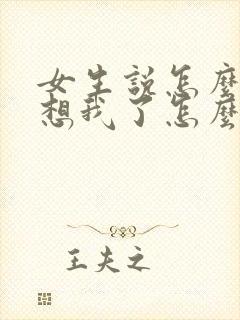 女生说怎麼
想我了怎麼
王夫之